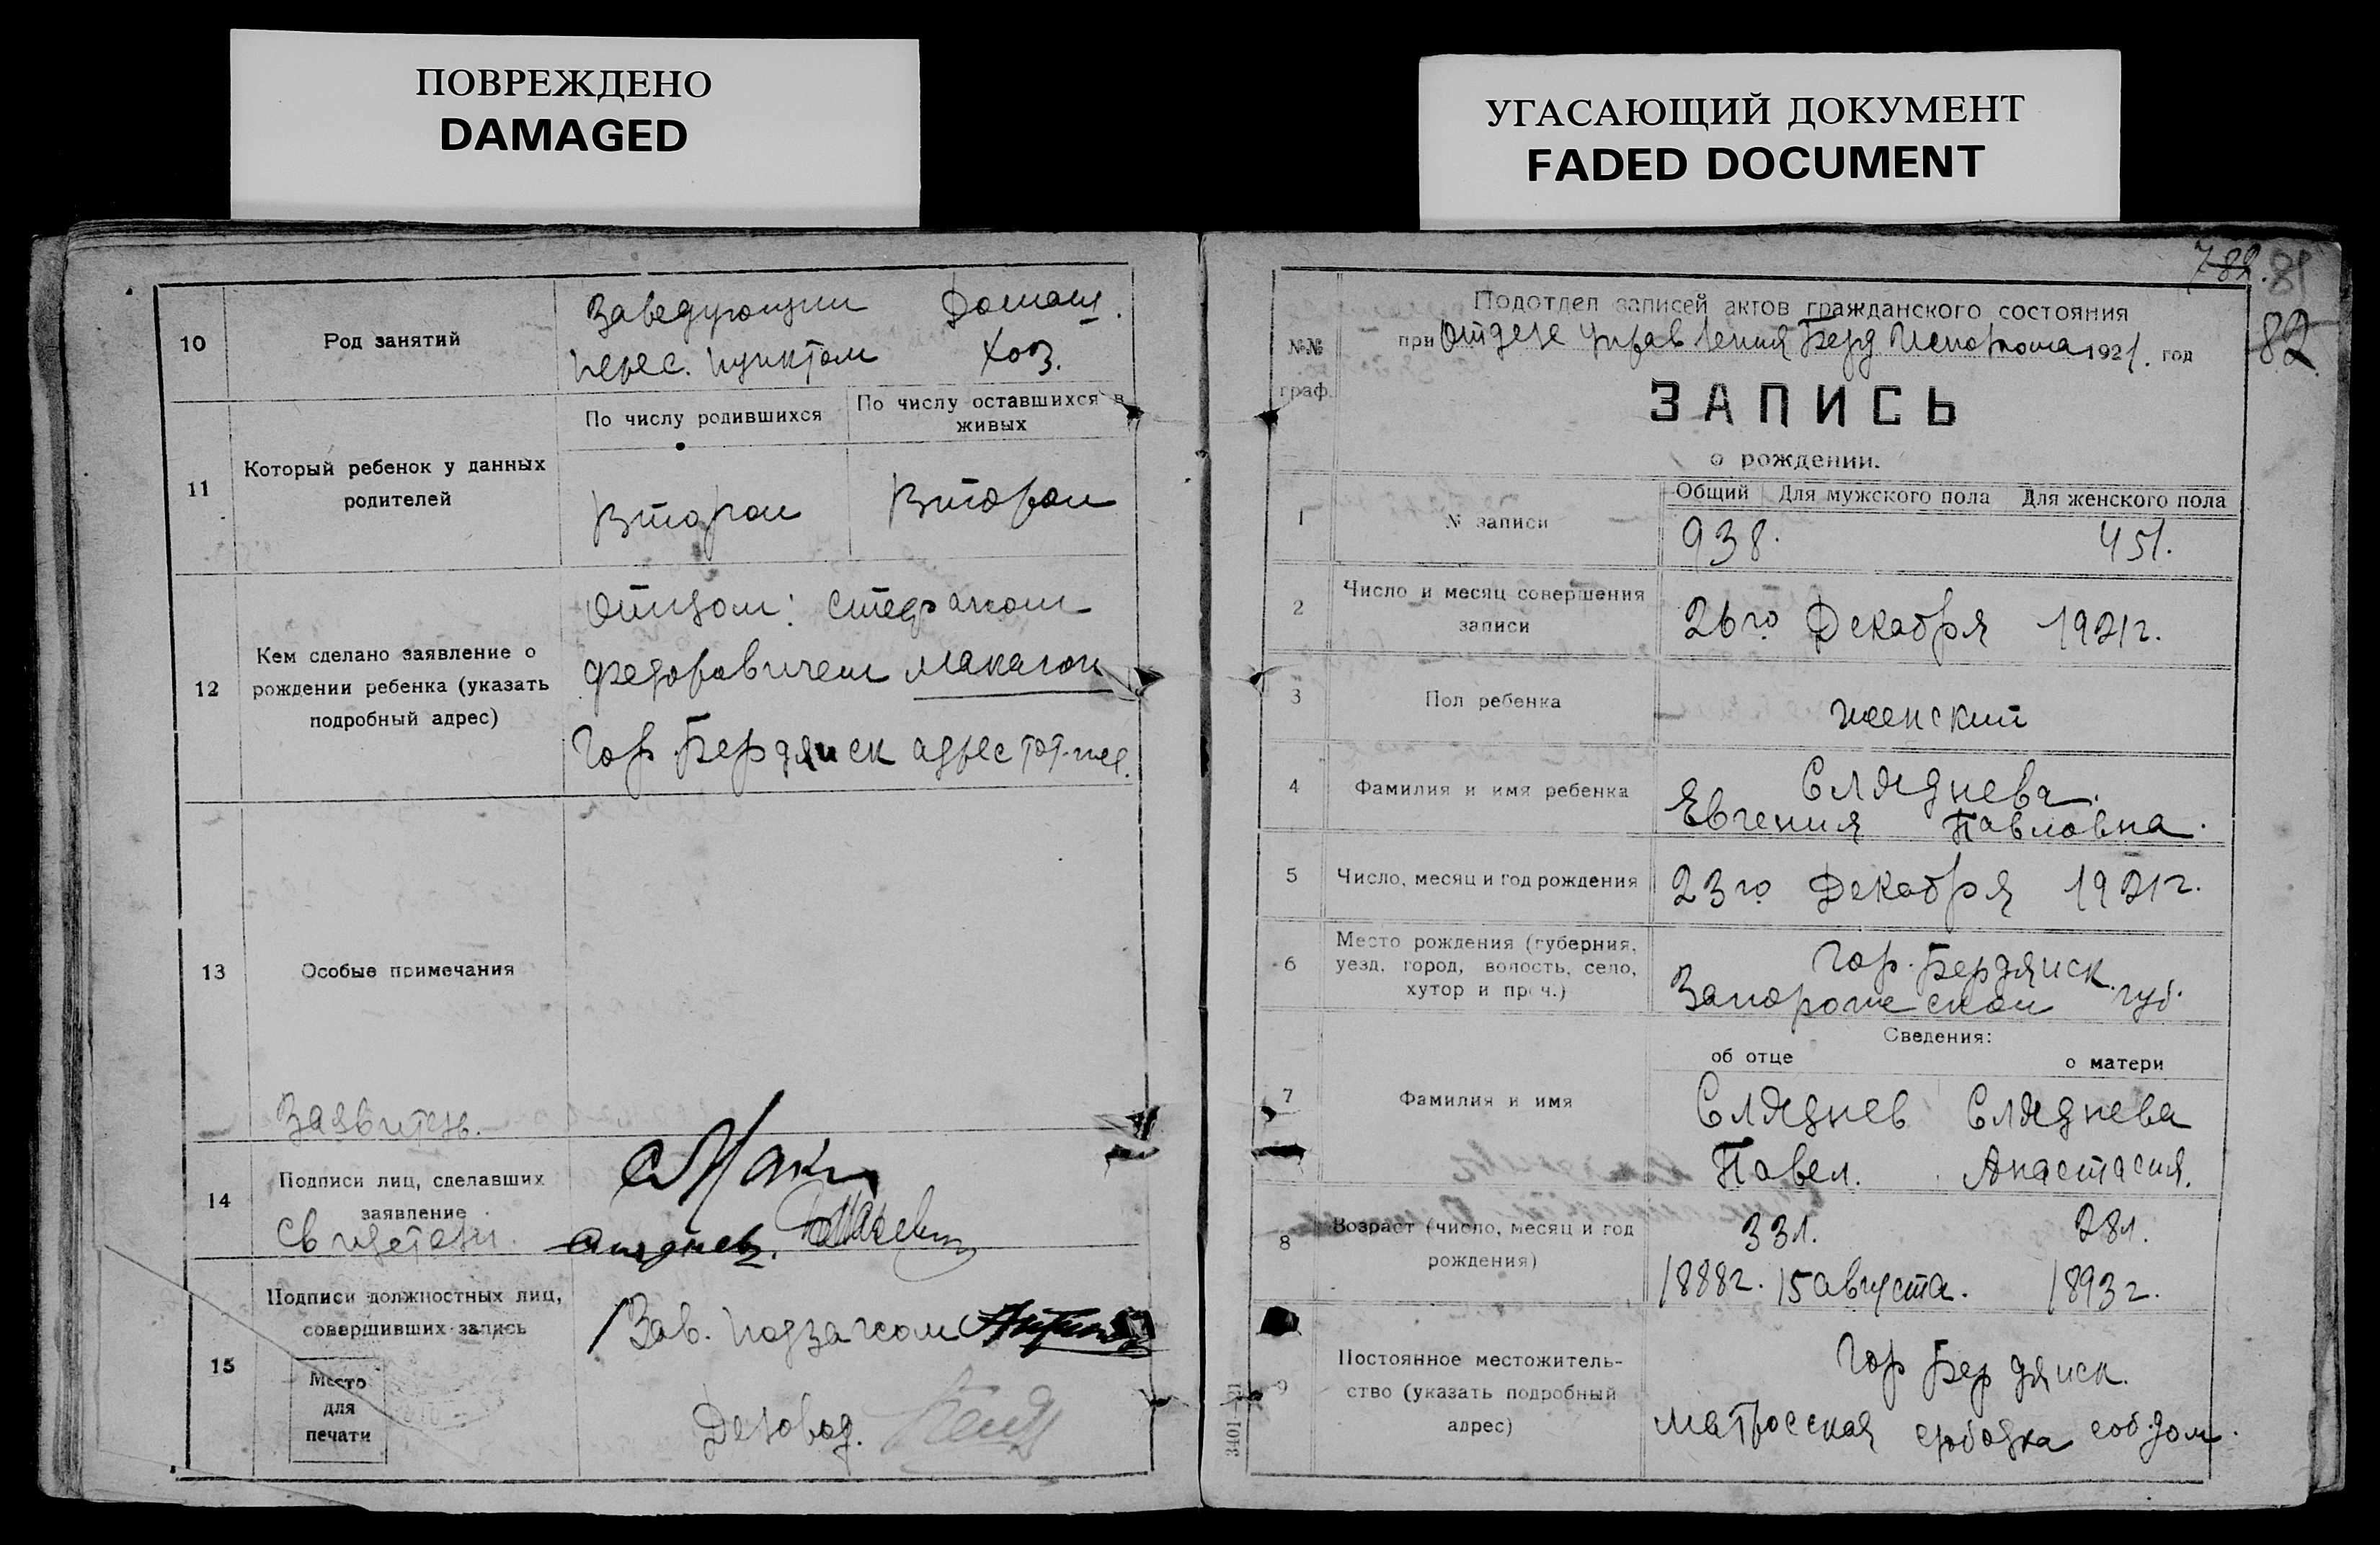 ПОВРЕЖДЕНО
DAMAGED
УГАСАЮЩИЙ ДОКУМЕНТ
FADED DOCUMENT
10
Род занятий
Заведующий
перес. пунктом
Домаш.
хоз.
11
Который ребенок у данных
родителей
По числу родившихся
По числу оставшихся в
живых
Второй
Второй
12
Кем сделано заявление о
рождении ребенка (указать
подробный адрес)
Отцом: Стефаном
Федоровичем Макагон
Гор Бердянск адрес тот-же.
13
Особые примечания
Заявитель.
14
Подписи лиц, сделавших
заявление
Свидетели.
15
Подписи должностных лиц,
совершивших запись
Место
для
печати
Зав. подзагсом
Деловод.
782
81
82
№№
граф.
Подотдел записей актов гражданского состояния
при Отделе Управления Берд Исполкома 1921. год
ЗАПИСЬ
о рождении.
1
№ записи
Общий
Для мужского пола
Для женского пола
938.
451.
2
Число и месяц совершения
записи
26го Декабря 1921г.
3
Пол ребенка
женский
4
Фамилия и имя ребенка
Слядднева.
Евгения Павловна.
5
Число, месяц и год рождения
23го Декабря 1921г.
6
Место рождения (губерния,
уезд, город, волость, село,
хутор и проч.)
Гор. Бердянск.
Запорожской губ.
Сведения:
об отце
о матери
7
Фамилия и имя
Сляднев
Павел.
Сляднева
Анастасия.
8
Возраст (число, месяц и год
рождения)
33л.
1888г. 15 августа.
28л.
1893г.
9
Постоянное местожитель-
ство (указать подробный
адрес)
Гор Бердянск.
Матросская слободка соб. дом.
3401-21